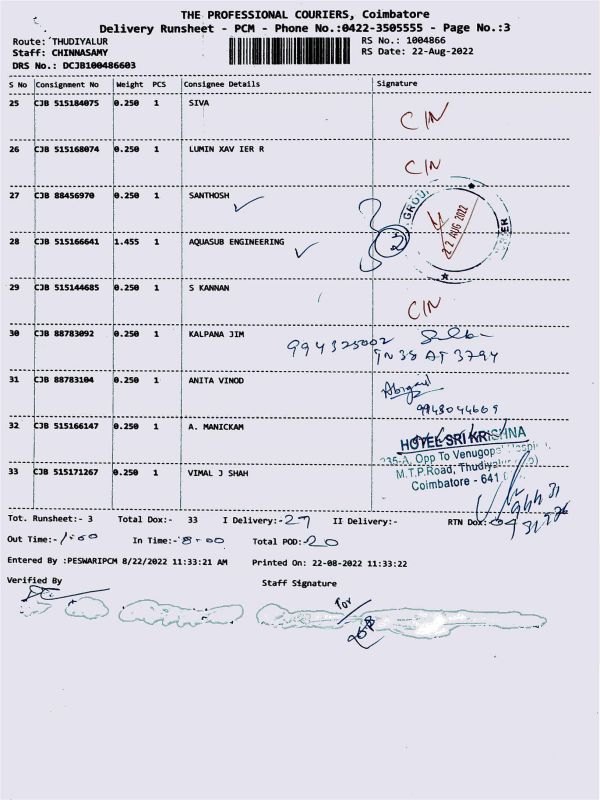 THE PROFESSIONAL COURIERS, Coimbatore
Delivery Runsheet - PCM - Phone No.:0422-3505555 - Page No.:3
Route: THUDIYALUR
RS No.: 1004866
Staff: CHINNASAMY
RS Date: 22-Aug-2022
DRS No.: DCJB100486603
S No Consignment No Weight PCS Consignee Details Signature
25 CJB 515184075 0.250 1 SIVA C/N
26 CJB 515168074 0.250 1 LUMIN XAV IER R C/N
27 CJB 88456970 0.250 1 SANTHOSH
GROU
22 AUG 2022
28 CJB 515166641 1.455 1 AQUASUB ENGINEERING
29 CJB 515144685 0.250 1 S KANNAN C/N
30 CJB 88783092 0.250 1 KALPANA JIM
994325002
TN 38 AT 3794
31 CJB 88783104 0.250 1 ANITA VINOD Abigail
9943044609
32 CJB 515166147 0.250 1 A. MANICKAM
HOTEL SRI KRISHNA
235-A, Opp To Venugopal
M.T.P.Road,
Coimbatore - 641
33 CJB 515171267 0.250 1 VIMAL J SHAH
Tot. Runsheet:- 3 Total Dox:- 33 I Delivery:- 27 II Delivery:- RTN Dox:- 04
Out Time:- 1.00 In Time:- 8.00 Total POD:- 20
Entered By :PESWARIPCM 8/22/2022 11:33:21 AM Printed On: 22-08-2022 11:33:22
Verified By Staff Signature